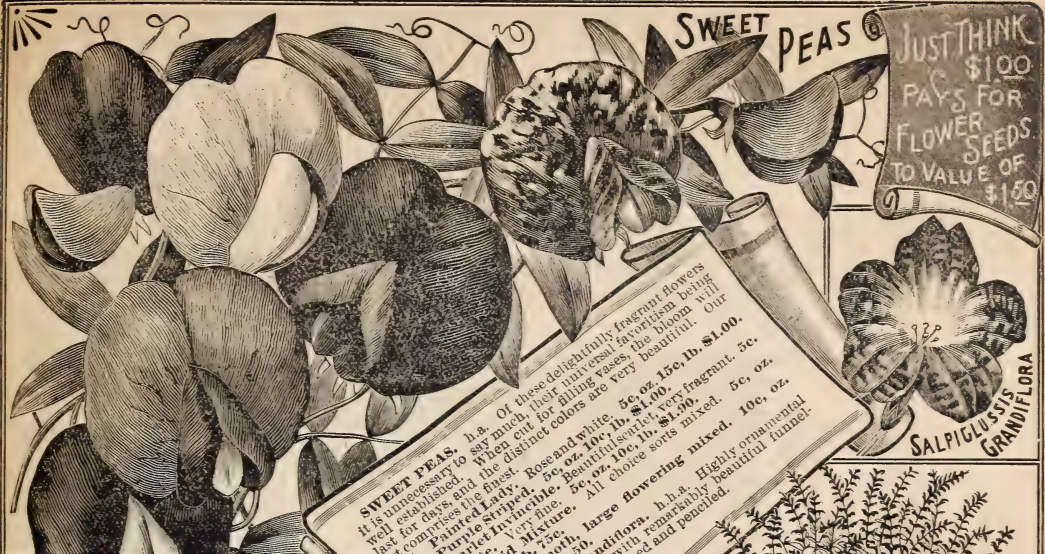 SWEET PEAS
JUST THINK
$1.00
PAYS FOR
FLOWER
SEEDS
TO VALUE OF
$1.50
SALPIGLOSSIS
GRANDIFLORA
SWEET PEAS, h.a. Of these delightfully fragrant flowers
it is unnecessary to say much, their universal favoritism being
well established. When cut for filling vases, the bloom will
last for days, and the distinct colors are very beautiful. Our
comprises the finest
Painted Lady. Rose and white. 5c, oz. 15c, lb. $1.00.
Purple Striped. 5c, oz. 10c, lb. $1.00.
Invincible. Beautiful scarlet, very fragrant. 5c.
Mixture. 5c, oz. 10c, lb. $1.90.
Very fine. All choice sorts mixed. 5c, oz.
75c.
large flowering mixed. 10c, oz.
50.
h.h.a. Highly ornamental
with remarkably beautiful funnel-
and penciled.